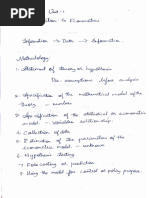 Unit-1
to Econometrics
Information → Data → Information
Methodology
1. Statement of theory or hypothesis
The assumptions before analysis
2. Specification of the mathematical model of the
theory - number
3. Specification of the statistical or econometric
model - variables relationship
4. Collection of data
5. Estimation of the parameters of the
econometric model - unknown
6. Hypothesis testing
7. Forecasting or prediction
8. Using the model for control or policy purpose